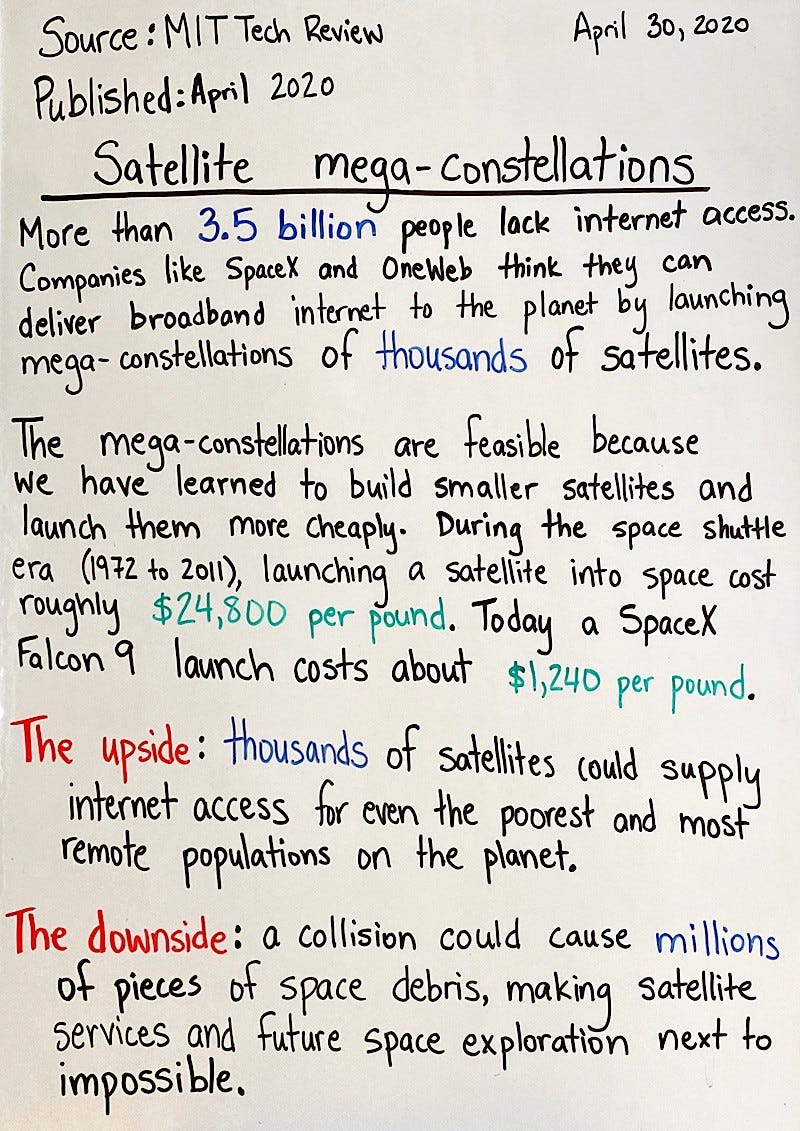 Source: MIT Tech Review April 30, 2020
Published: April 2020
Satellite mega-constellations
More than 3.5 billion people lack internet access.
Companies like SpaceX and OneWeb think they can
deliver broadband internet to the planet by launching
mega-constellations of thousands of satellites.
The mega-constellations are feasible because
we have learned to build smaller satellites and
launch them more cheaply. During the space shuttle
era (1972 to 2011), launching a satellite into space cost
roughly $24,800 per pound. Today a SpaceX
Falcon 9 launch costs about $1,240 per pound.
The upside: thousands of satellites could supply
internet access for even the poorest and most
remote populations on the planet.
The downside: a collision could cause millions
of pieces of space debris, making satellite
services and future space exploration next to
impossible.